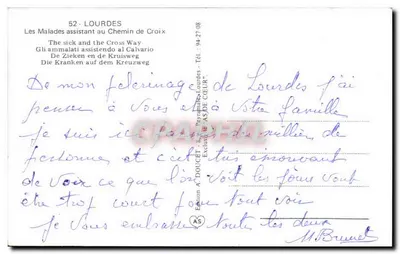 52 - LOURDES
Les Malades assistant au Chemin de Croix
The sick and the Cross Way
Gli ammalati assistendo al Calvario
De Zieken en de Kruisweg
Die Kranken auf dem Kreuzweg
De mon pèlerinage de Lourdes j'ai
penser à Vous et à Votre famille
je suis ici des milliers de
personne et c'est très émouvant
de voir ce que l'on voit les jours vont
être trop court pour tout voir
je Vous embrasse toutes les deux
M Brunet
Edition A. DOUCET Lourdes - Tél. : 94-27-08
AS